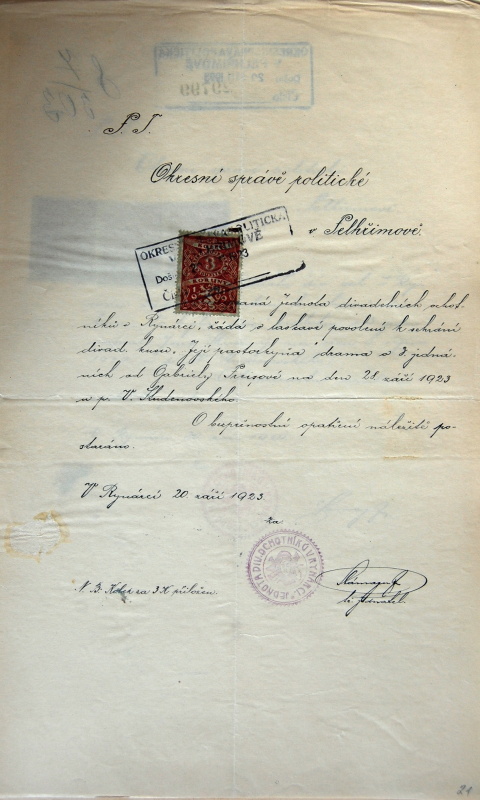 P. T.
Okresní správě politické
v Pelhřimově.
OKRESNÍ POLITICKÁ
3
KORUNY
1923
aná jednota divadelních ochot-
níků v Rynárci, žádá o laskavé povolení k sehrání
divad. kusu „Její pastorkyňa" drama o 3. jedná-
ních od Gabriely Preisové na den 28. září 1923
u p. V. Studenovského.
O bezpečnostní opatření náležitě po-
staráno.
V Rynárci 20. září 1923.
za
JEDNOTA DIV. OCHOTNÍKŮ V RYNÁRCI
N. B. Kolek za 3 K přiložen.
t. č. jednatel.
21